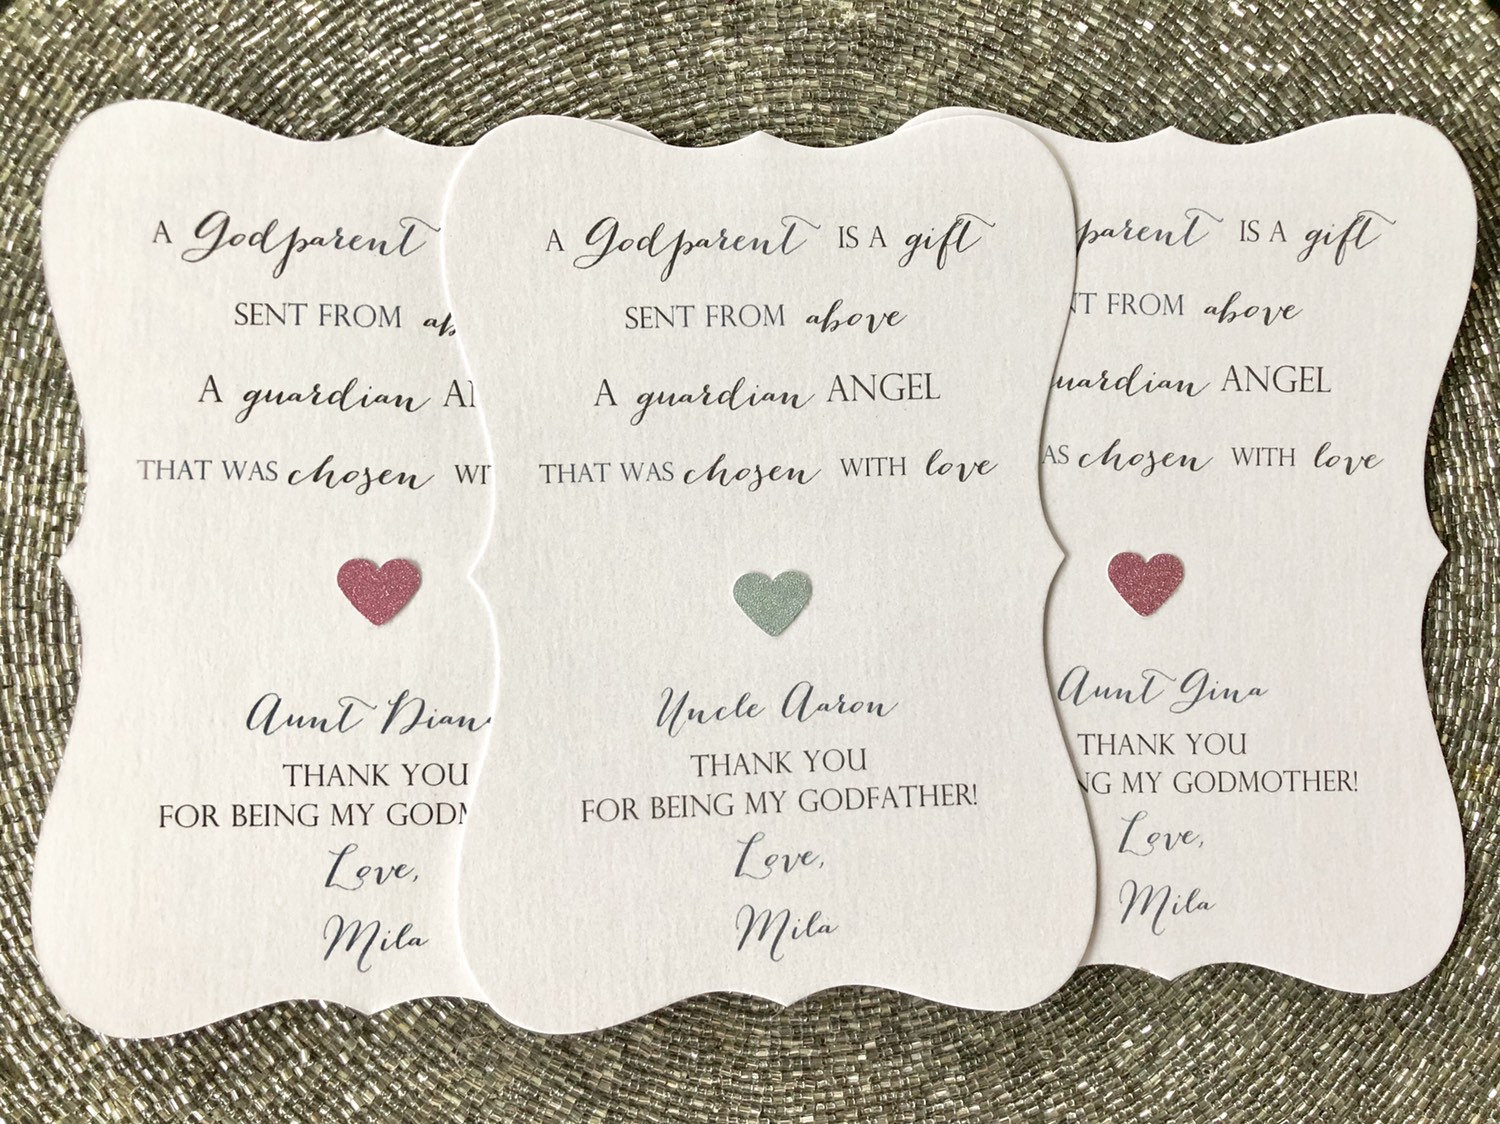 A Godparent
SENT FROM
A guardian
THAT WAS chosen
Aunt
THANK YOU
FOR BEING MY
Love,
Mila
A Godparent IS A gift
SENT FROM above
A guardian ANGEL
THAT WAS chosen WITH love
Uncle Aaron
THANK YOU
FOR BEING MY GODFATHER!
Love,
Mila
IS A gift
FROM above
ANGEL
chosen WITH love
Aunt Gina
THANK YOU
MY GODMOTHER!
Love,
Mila